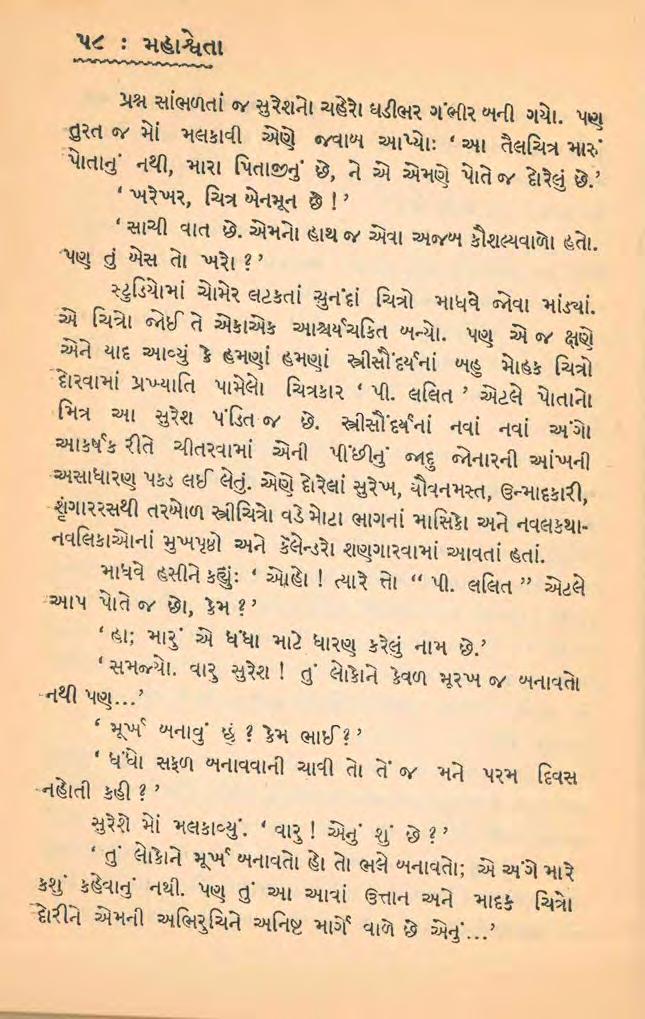 ૫૮ : મહાશ્વેતા
પ્રશ્ન સાંભળતાં જ સુરેશનો ચહેરો ઘડીભર ગંભીર બની ગયો. પણ
તુરત જ મોં મલકાવી એણે જવાબ આપ્યો: ‘ આ તૈલચિત્ર મારું
પોતાનું નથી, મારા પિતાજીનું છે, ને એ એમણે પોતે જ દોરેલું છે.’
‘ ખરેખર, ચિત્ર બેનમૂન છે ! ’
‘ સાચી વાત છે. એમનો હાથ જ એવા અજબ કૌશલ્યવાળો હતો.
પણ તું બેસ તો ખરો ? ’
સ્ટુડિયોમાં ચોમેર લટકતાં ચુનંદાં ચિત્રો માધવે જોવા માંડ્યાં.
એ ચિત્રો જોઈ તે એકાએક આશ્ચર્યચકિત બન્યો. પણ એ જ ક્ષણે
એને યાદ આવ્યું કે હમણાં હમણાં સ્ત્રીસૌંદર્યનાં બહુ મોહક ચિત્રો
દોરવામાં પ્રખ્યાતિ પામેલો ચિત્રકાર ‘ પી. લલિત ’ એટલે પોતાનો
મિત્ર આ સુરેશ પંડિત જ છે. સ્ત્રીસૌંદર્યનાં નવાં નવાં અંગો
આકર્ષક રીતે ચીતરવામાં એની પીંછીનું જાદુ જોનારની આંખની
અસાધારણ પકડ લઈ લેતું. એણે દોરેલાં સુરેખ, યૌવનમસ્ત, ઉન્માદકારી,
શૃંગારરસથી તરબોળ સ્ત્રીચિત્રો વડે મોટા ભાગનાં માસિકો અને નવલકથા-
નવલિકાઓનાં મુખપૃષ્ઠો અને કૅલેન્ડરો શણગારવામાં આવતાં હતાં.
માધવે હસીને કહ્યું: ‘ ઓહો ! ત્યારે તો “ પી. લલિત ” એટલે
આપ પોતે જ છો, કેમ ? ’
‘ હા; મારું એ ધંધા માટે ધારણ કરેલું નામ છે.’
‘ સમજ્યો. વારુ સુરેશ ! તું લોકોને કેવળ મૂરખ જ બનાવતો
નથી પણ...’
‘ મૂર્ખ બનાવું છું ? કેમ ભાઈ ? ’
‘ ધંધો સફળ બનાવવાની ચાવી તો તેં જ મને પરમ દિવસ
નહોતી કહી ? ’
સુરેશે મોં મલકાવ્યું. ‘ વારુ ! એનું શું છે ? ’
‘ તું લોકોને મૂર્ખ બનાવતો હો તો ભલે બનાવતો; એ અંગે મારે
કશું કહેવાનું નથી. પણ તું આ આવાં ઉત્તાન અને માદક ચિત્રો
દોરીને એમની અભિરુચિને અનિષ્ટ માર્ગે વાળે છે એનું...’